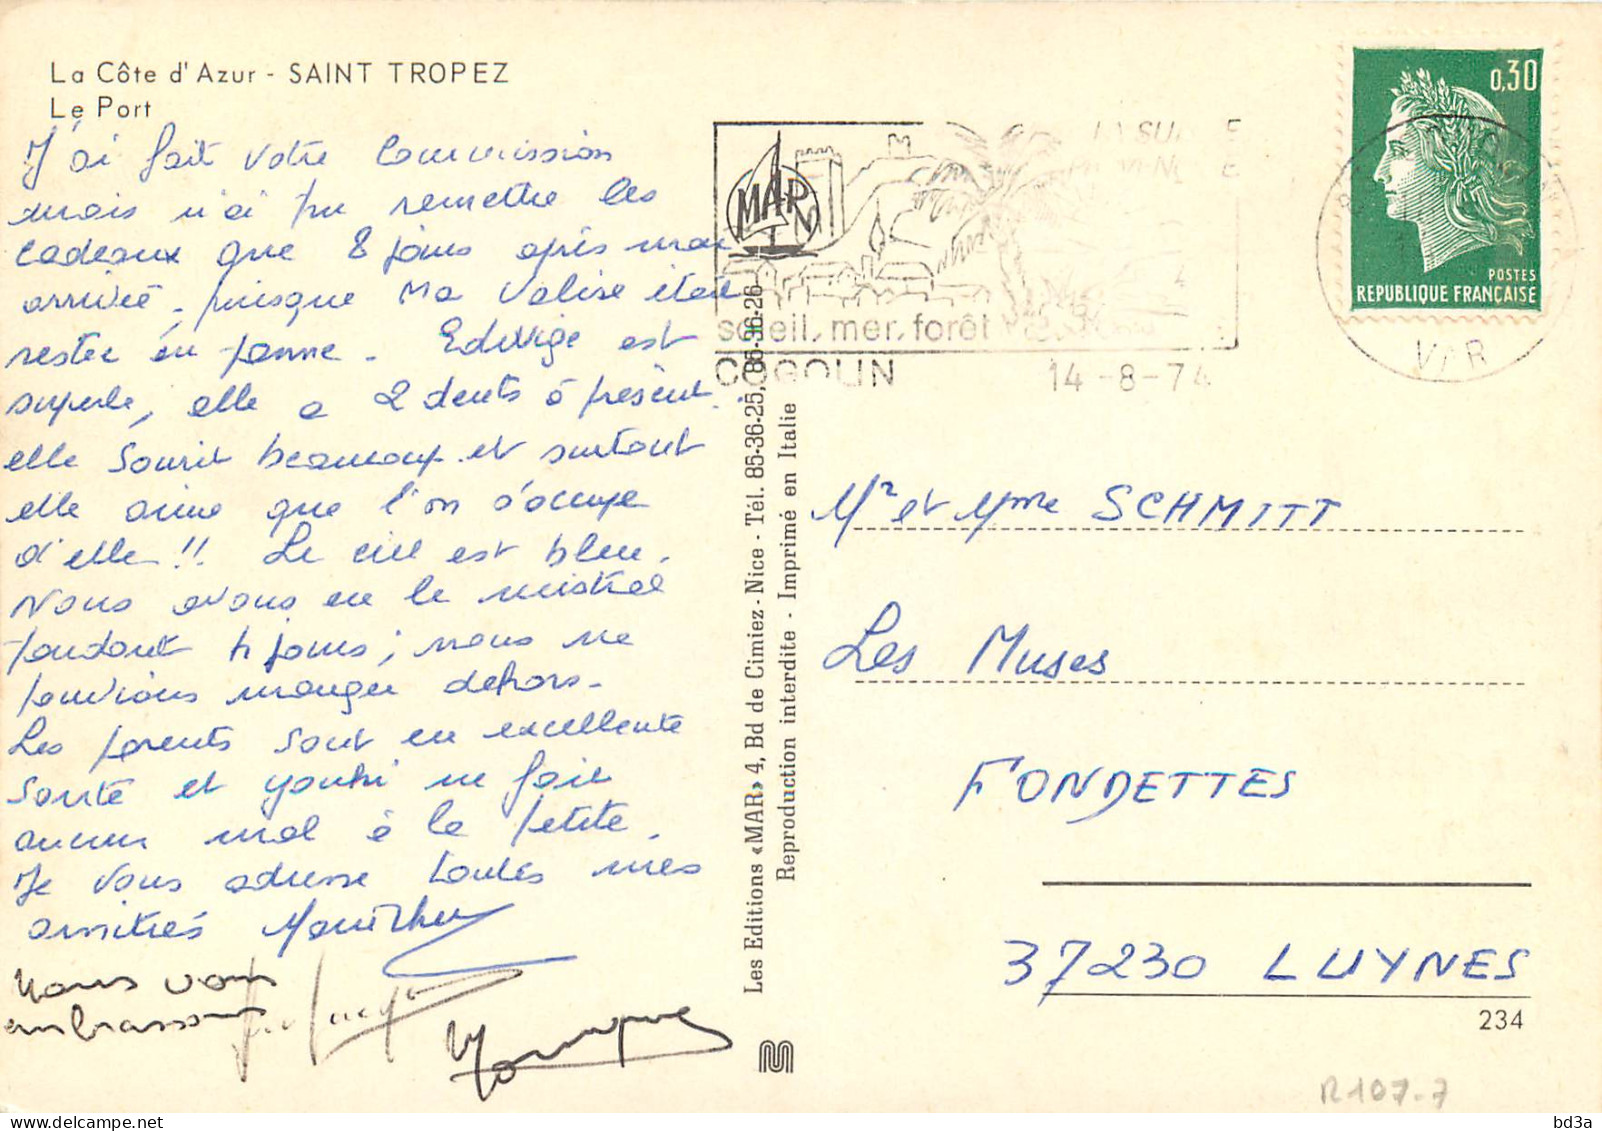 La Côte d'Azur - SAINT TROPEZ
Le Port
J'ai fait votre Commission
mais n'ai pu remettre les
cadeaux que 8 jours après mon
arrivée, puisque ma valise était
restée en panne. Edwige est
superbe, elle a 2 dents à présent.
elle sourit beaucoup et surtout
elle aime que l'on s'occupe
d'elle!! Le ciel est bleu.
Nous avons eu le mistral
pendant 4 jours; nous ne
pouvions manger dehors.
Les parents sont en excellente
santé et youki ne fait
aucun mal à la petite.
Je vous adresse toutes mes
amitiés
Nous vous
embrassons
Les Editions «MAR» 4, Bd de Cimiez - Nice - Tél. 85-36-25, 86-36-26
Reproduction interdite - Imprimé en Italie
MAR
soleil, mer, forêt
COGOLIN
14-8-74
VAR
0,30
POSTES
REPUBLIQUE FRANÇAISE
Mr et Mme SCHMITT
Les Muses
FONDETTES
37230 LUYNES
234
R107-7
bd3a